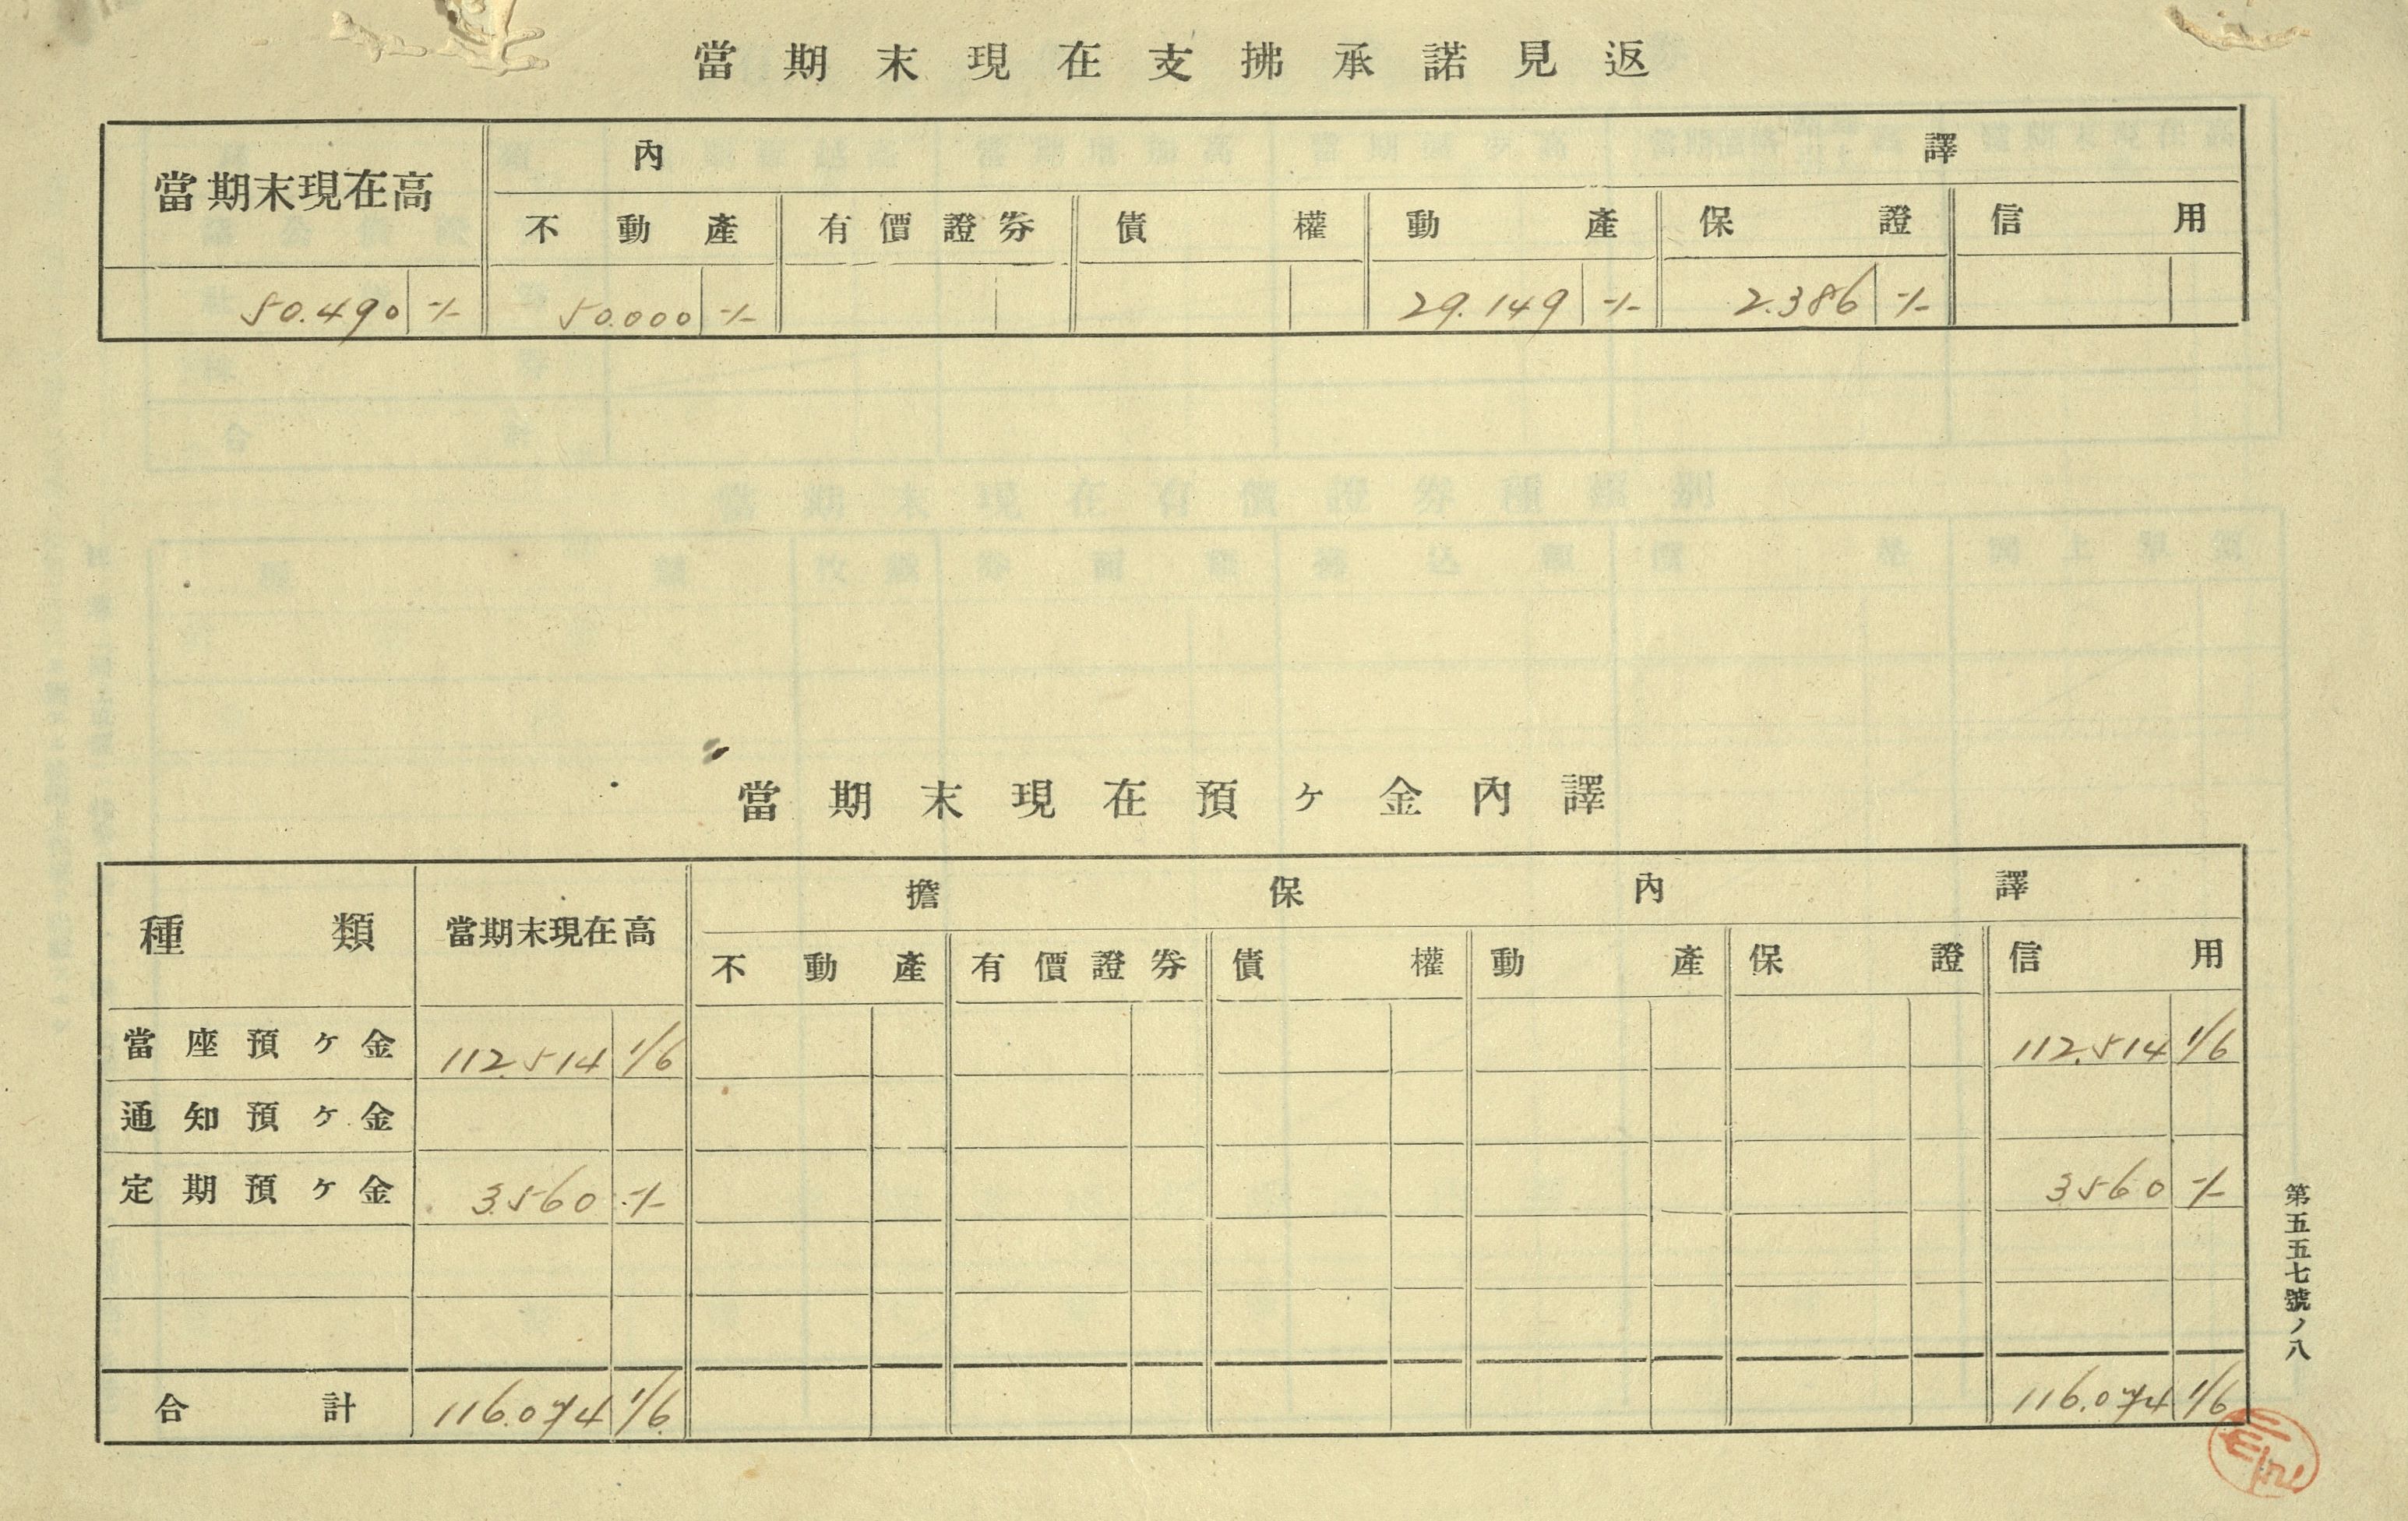 當期末現在支拂承諾見返
當期末現在高 內譯
不動產 有價證券 債權 動產 保證 信用
50.490 -/- 50.000 -/- 29.149 -/- 2.386 -/-
當期末現在預ヶ金內譯
種類 當期末現在高 擔保內譯
不動產 有價證券 債權 動產 保證 信用
當座預ヶ金 112.514 1/6 112.514 1/6
通知預ヶ金
定期預ヶ金 3.560 -/- 3.560 -/-
合計 116.074 1/6 116.074 1/6
第五五七號ノ八